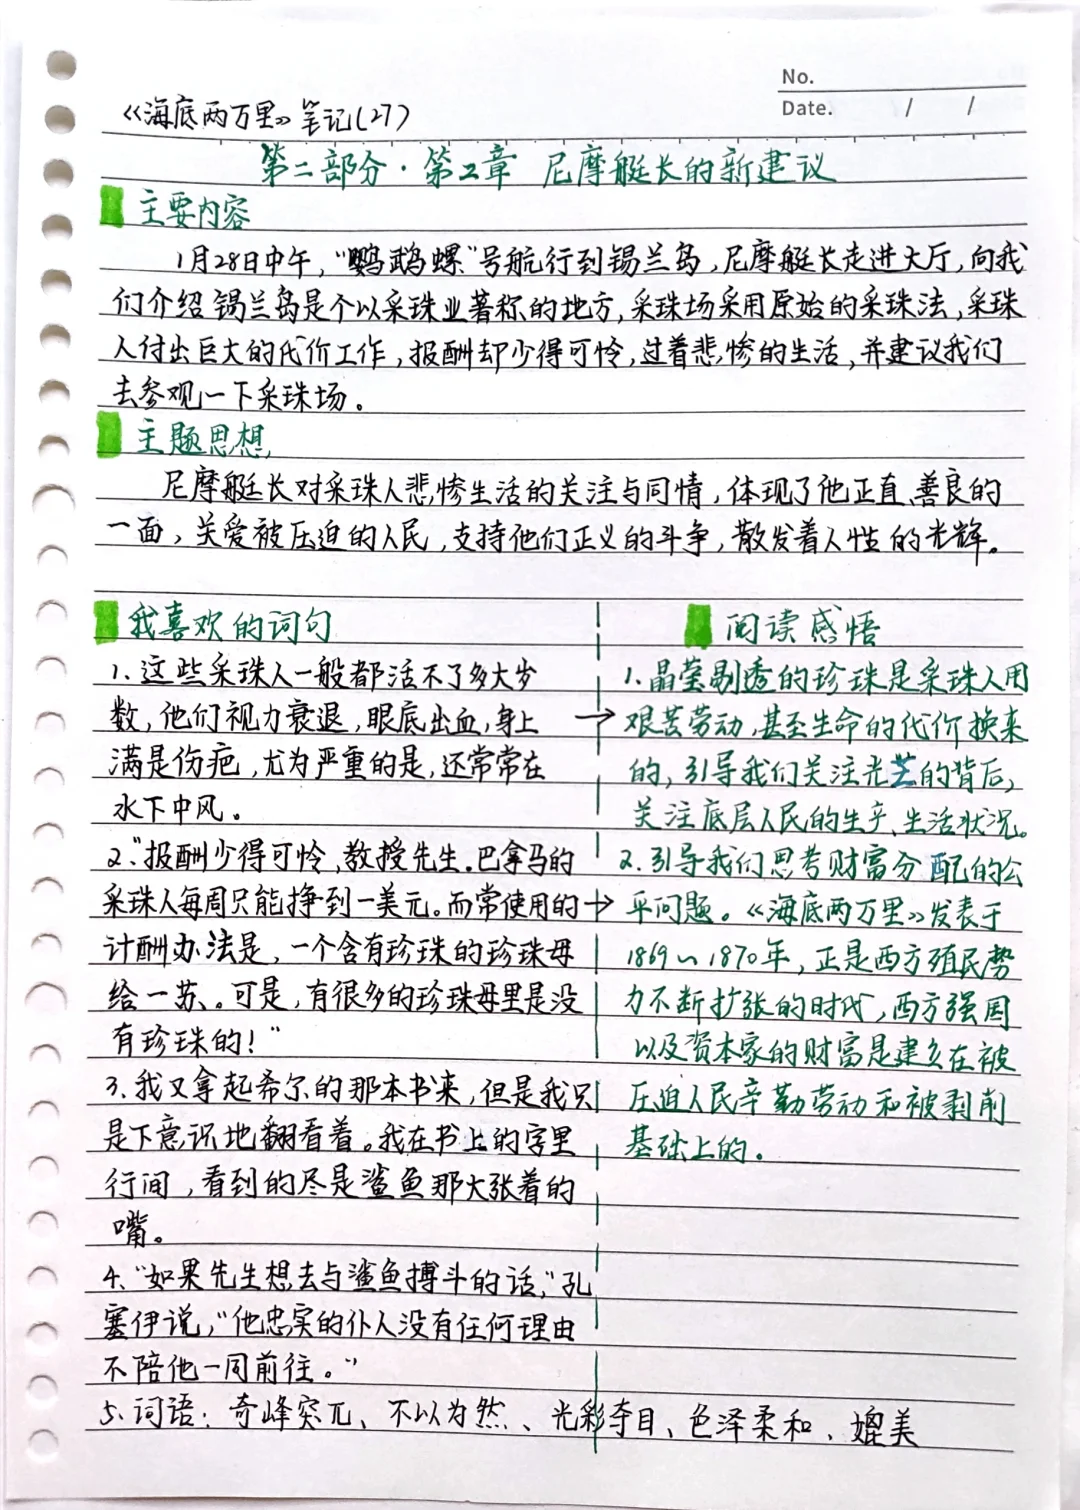 No.
Date. / /
《海底两万里》笔记(27)
第二部分·第2章 尼摩艇长的新建议
主要内容
1月28日中午，“鹦鹉螺”号航行到锡兰岛，尼摩艇长走进大厅，向我
们介绍锡兰岛是个以采珠业著称的地方，采珠场采用原始的采珠法，采珠
人付出巨大的代价工作，报酬却少得可怜，过着悲惨的生活，并建议我们
去参观一下采珠场。
主题思想
尼摩艇长对采珠人悲惨生活的关注与同情，体现了他正直善良的
一面，关爱被压迫的人民，支持他们正义的斗争，散发着人性的光辉。
我喜欢的词句
1.这些采珠人一般都活不了多大岁
数，他们视力衰退，眼底出血，身上
满是伤疤，尤为严重的是，还常常在
水下中风。
2.“报酬少得可怜，教授先生.巴拿马的
采珠人每周只能挣到一美元。而常使用的
计酬办法是，一个含有珍珠的珍珠母
给一苏、。可是，有很多的珍珠母里是没
有珍珠的！”
3.我又拿起希尔的那本书来，但是我只
是下意识地翻看着。我在书上的字里
行间，看到的尽是鲨鱼那大张着的
嘴。
4.“如果先生想去与鲨鱼搏斗的话，”孔
塞伊说，“他忠实的仆人没有任何理由
不陪他一同前往。”
5.词语：奇峰突兀、不以为然、光彩夺目、色泽柔和、媲美
阅读感悟
1.晶莹剔透的珍珠是采珠人用
→艰苦劳动，甚至生命的代价换来
的，引导我们关注光芒的背后，
关注底层人民的生产、生活状况。
2.引导我们思考财富分配的公
→平问题。《海底两万里》发表于
1869～1870年，正是西方殖民势
力不断扩张的时代，西方强国
以及资本家的财富是建立在被
压迫人民辛勤劳动和被剥削
基础上的。